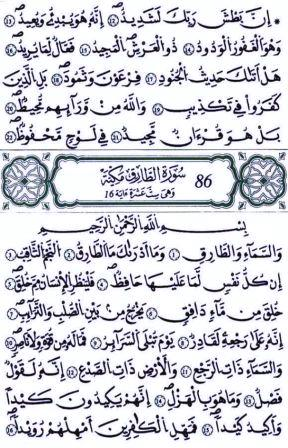 إِنَّ بَطْشَ رَبِّكَ لَشَدِيدٌ ١٢ إِنَّهُ هُوَ يُبْدِئُ وَيُعِيدُ ١٣
وَهُوَ الْغَفُورُ الْوَدُودُ ١٤ ذُو الْعَرْشِ الْمَجِيدُ ١٥ فَعَّالٌ لِمَا يُرِيدُ ١٦
هَلْ أَتَىٰكَ حَدِيثُ الْجُنُودِ ١٧ فِرْعَوْنَ وَثَمُودَ ١٨ بَلِ الَّذِينَ
كَفَرُوا فِي تَكْذِيبٍ ١٩ وَاللَّهُ مِنْ وَرَائِهِمْ مُحِيطٌ ٢٠
بَلْ هُوَ قُرْءَانٌ مَجِيدٌ ٢١ فِي لَوْحٍ مَحْفُوظٍ ٢٢
86 سُورَةُ الطَّارِقِ مَكِّيَّةٌ
وَهِيَ سِتَّ عَشْرَةَ ءَايَة 16
بِسْمِ اللَّهِ الرَّحْمَٰنِ الرَّحِيمِ
وَالسَّمَاءِ وَالطَّارِقِ ١ وَمَا أَدْرَىٰكَ مَا الطَّارِقُ ٢ النَّجْمُ الثَّاقِبُ ٣
إِنْ كُلُّ نَفْسٍ لَمَّا عَلَيْهَا حَافِظٌ ٤ فَلْيَنْظُرِ الْإِنْسَانُ مِمَّ خُلِقَ ٥
خُلِقَ مِنْ مَاءٍ دَافِقٍ ٦ يَخْرُجُ مِنْ بَيْنِ الصُّلْبِ وَالتَّرَائِبِ ٧
إِنَّهُ عَلَىٰ رَجْعِهِ لَقَادِرٌ ٨ يَوْمَ تُبْلَى السَّرَائِرُ ٩ فَمَا لَهُ مِنْ قُوَّةٍ وَلَا نَاصِرٍ ١٠
وَالسَّمَاءِ ذَاتِ الرَّجْعِ ١١ وَالْأَرْضِ ذَاتِ الصَّدْعِ ١٢ إِنَّهُ لَقَوْلٌ
فَصْلٌ ١٣ وَمَا هُوَ بِالْهَزْلِ ١٤ إِنَّهُمْ يَكِيدُونَ كَيْدًا ١٥
وَأَكِيدُ كَيْدًا ١٦ فَمَهِّلِ الْكَافِرِينَ أَمْهِلْهُمْ رُوَيْدًا ١٧